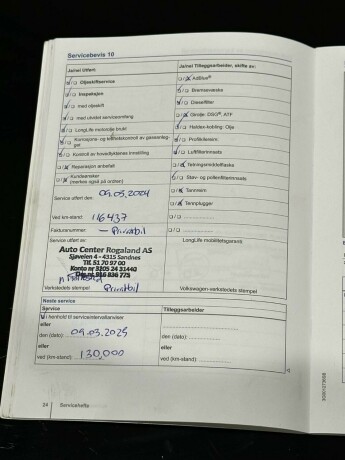 Servicebevis 10
Ja/nei Utført:
Oljeskiftservice
Inspeksjon
med oljeskift
med utvidet serviceomfang
LongLife motorolje brukt
Korrosjons- og tetthetskontroll av gassanleg-
get
Kontroll av hovedlyktenes innstilling
Reparasjon anbefalt
Kundeønsker
(merkes også på ordren)
Service utført den: 09.03.2024
Ved km-stand: 116437
Fakturanummer: – Privatbil
Service utført av:
Auto Center Rogaland AS
Sjøveien 4 - 4315 Sandnes
Tlf. 51 70 97 00
Konto nr 3205 24 31440
Org.nr 916 636 775
Privatbil
Verkstedets stempel
Ja/nei Tilleggsarbeider, skifte av:
AdBlue®
Bremsevæske
Dieselfilter
Girolje: DSG®, ATF
Haldex-kobling: Olje
Pollfilterkrem
Luftfilterinnsats
Tetningsmiddelflaske
Støv- og pollenfilterinnsats
Tannrem
Tennplugger
LongLife mobilitetsgaranti
Volkswagen-verkstedets stempel
Neste service
Service
Tilleggsarbeider
i henhold til serviceintervallanviser
eller
den (dato): 09.03.2025
eller
ved (km-stand): 130,000
den (dato):
eller
ved (km-stand):
24 Servicehefte